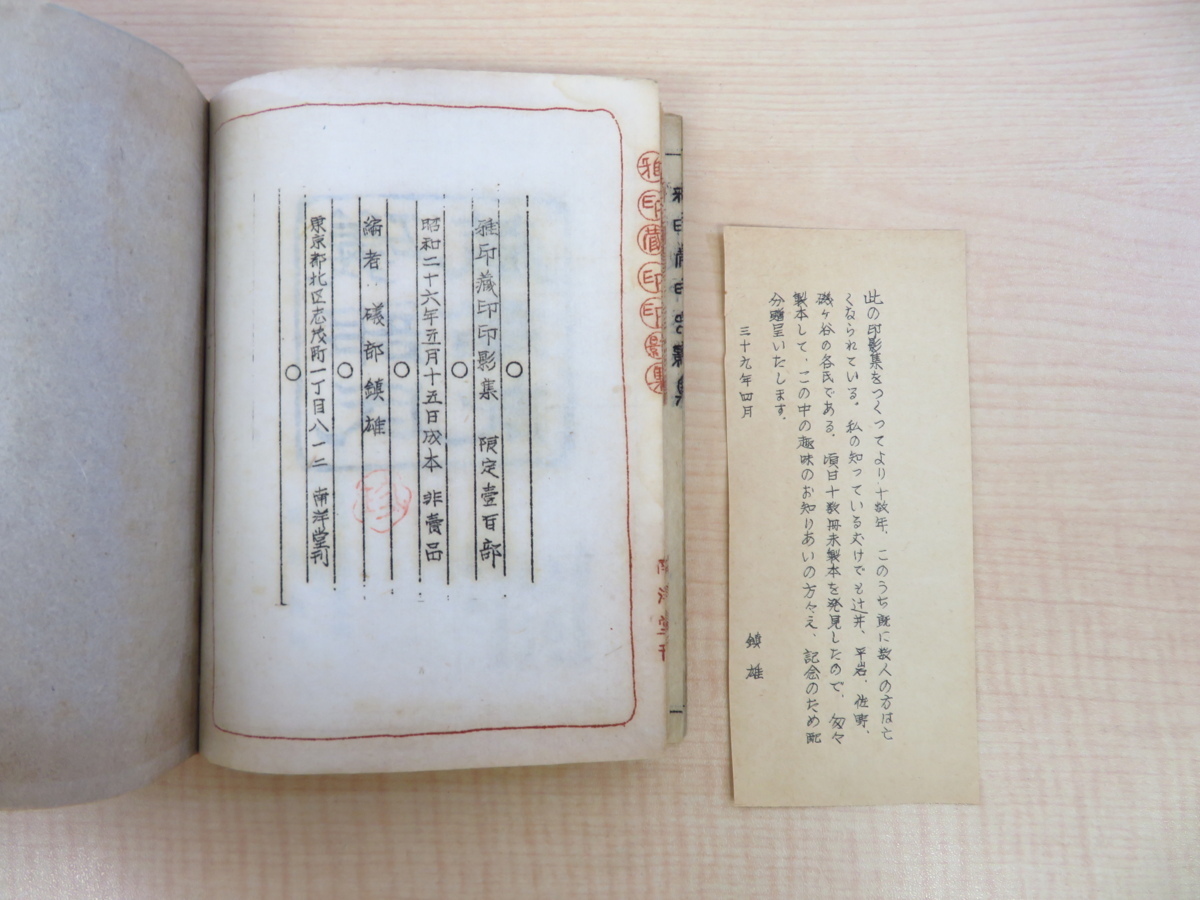 雅印蔵印印影集
南洋堂刊
雅印藏印印影集　限定壹百部
昭和二十六年五月十五日成本　非賣品
編者　磯部鎮雄
東京都北区志茂町一丁目八一二　南洋堂刊
此の印影集をつくつてより十数年、このうち既に数人の方は亡
くなられている。私の知っているだけでも辻井、平岩、佐野、
磯ヶ谷の各氏である。頃日十数冊未製本を発見したので、匆々
製本して、この中の趣味のお知りあいの方々え、記念のため配
分贈呈いたします。
三十九年四月
鎮雄